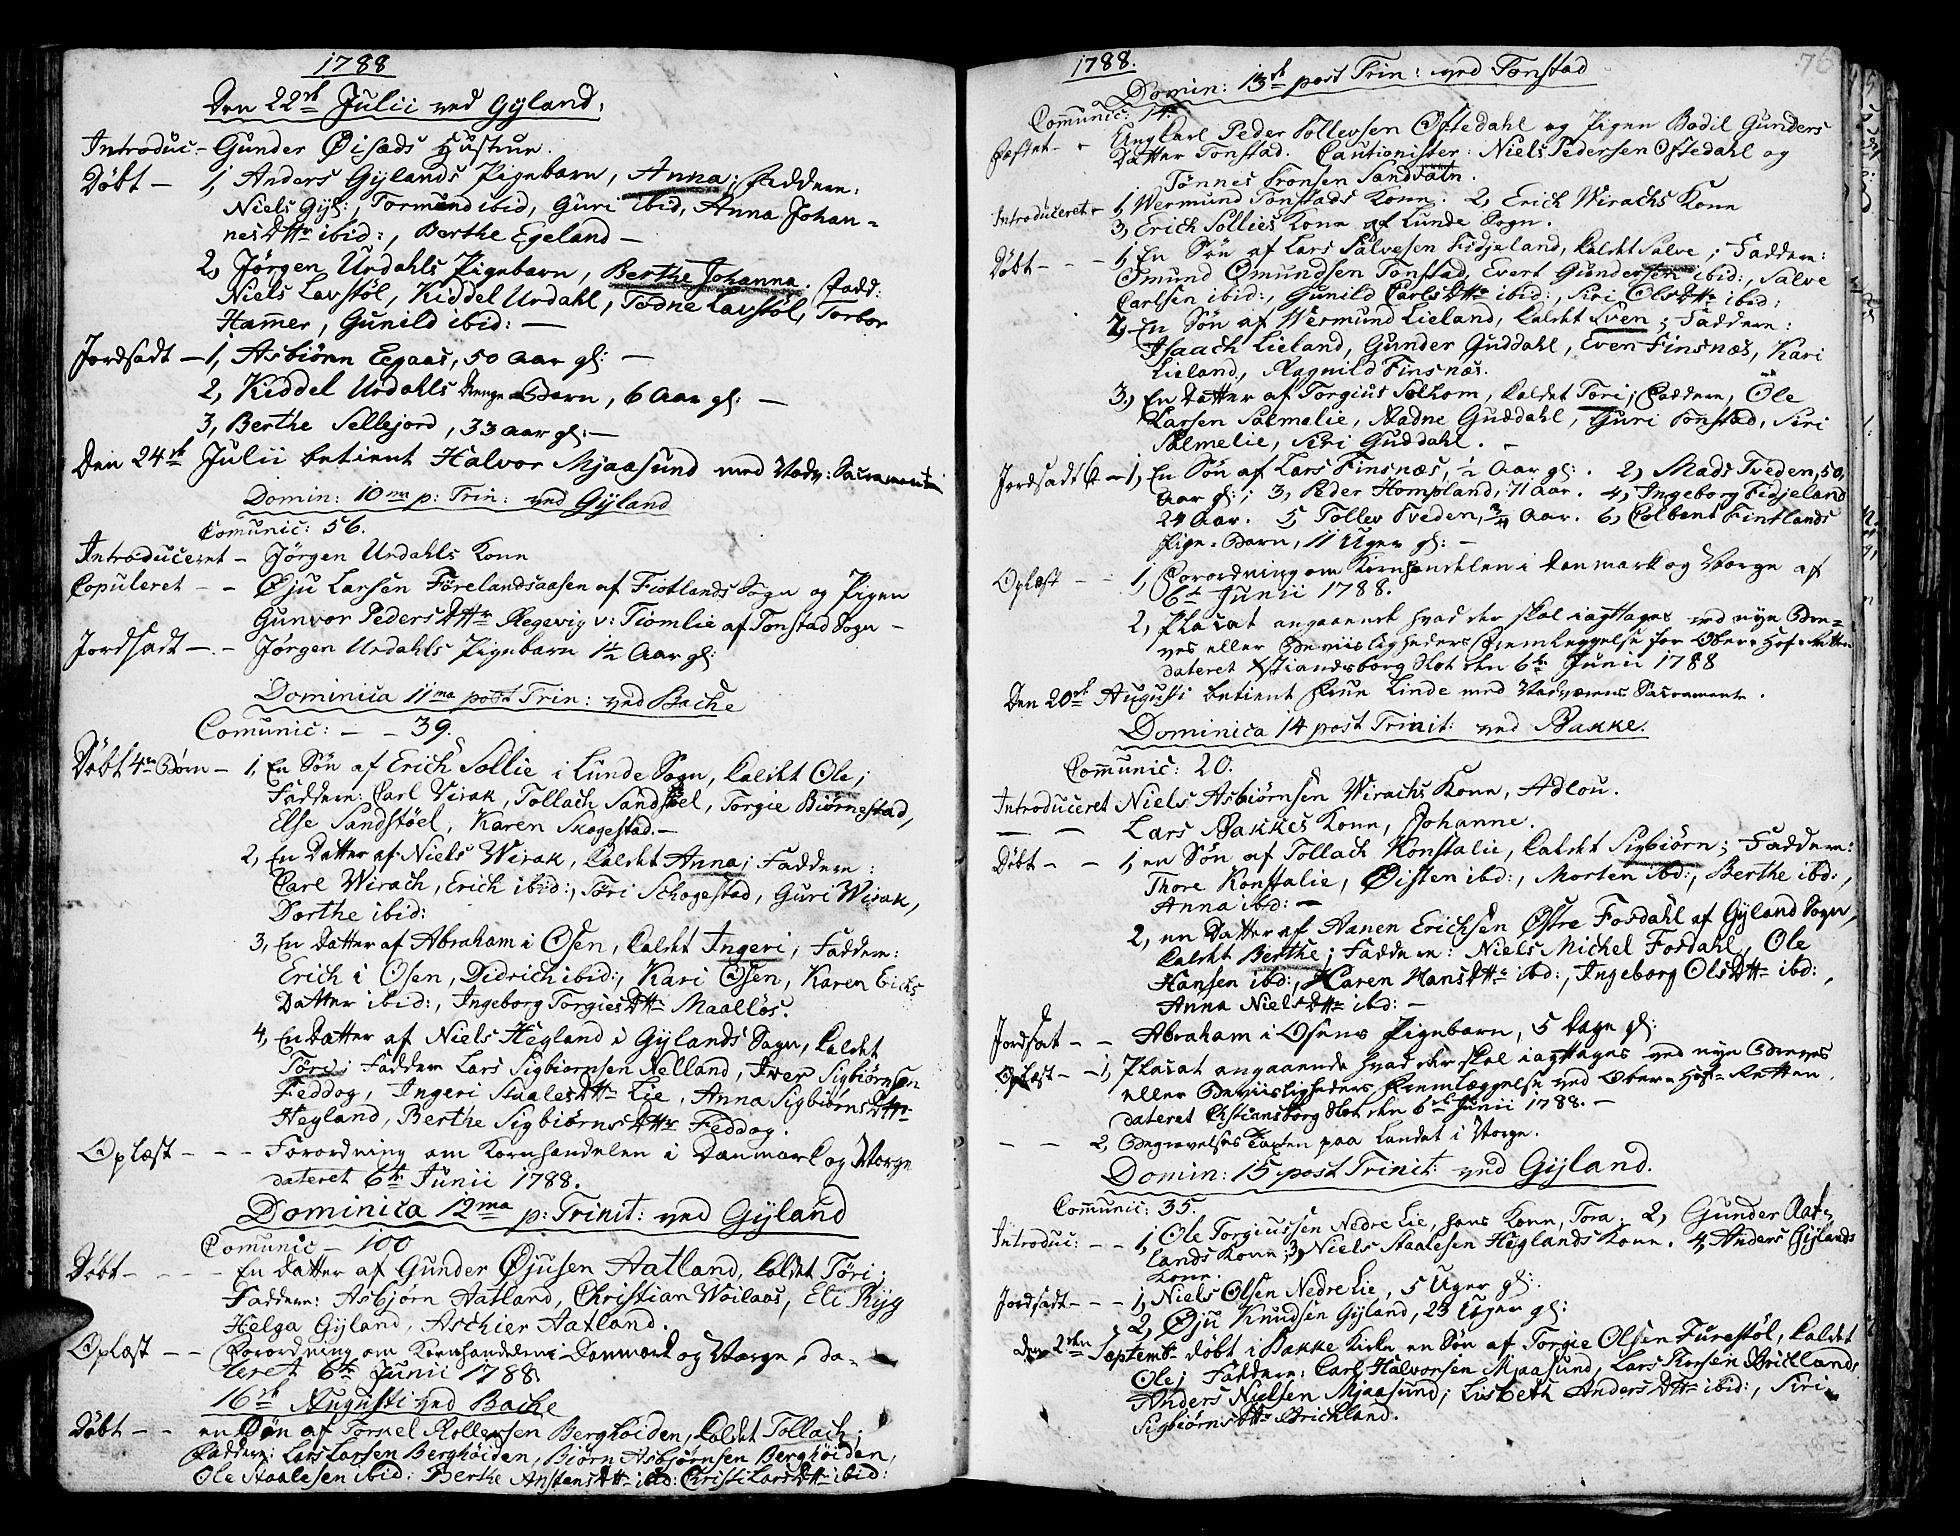 1788
Den 22de Julii ved Gyland,
Introduc- Gunder Øisæds Hustrue.
Døbt - 1, Anders Gylands Pigebarn, Anna; Faddere:
Niels Gyl:, Tormund ibid, Guri ibid, Anna Johan-
nesDttr ibid:, Berthe Egeland -
2, Jørgen Urdahls Pigebarn, Berthe Johanna. Fadd:
Niels Lavstøl, Kiddel Urdahl, Todne Lavstøl, Torbor
Hamer, Gunild ibid: -
Jordsadt - 1, Asbiørn Egaas, 50 Aar gl: -
2, Kiddel Urdahls Drenge Barn, 6 Aar gl: -
3, Berthe Sellejord, 33 Aar gl: -
Den 24de Julii betient Halvor Mjaasund med Nadv: Sacramente
Domin: 10ma p: Trin: ved Gyland
Comunic: 56.
Introduceret - Jørgen Urdahls Kone
Copuleret - - Øju Larsen Førelandsaasen af Fiotlands Sogn og Pigen
Gunvor PedersDttr Regevig v: Tiomlie af Tonstad Sogn -
Jordsadt - - Jørgen Urdahls Pigebarn 1½ Aar gl:
Dominica 11ma post Trin: ved Bache
Comunic: - - 39.
Døbt 4re Børn - 1, En Søn af Erich Sollie i Lunde Sogn, kaldet Ole;
Faddere: Carl Virak, Tollach Sandstøel, Torgie Biørnestad,
Else Sandstøel, Karen Skogestad. -
2, En Datter af Niels Wirak, kaldet Anna; Faddere:
Carl Wirach, Erich ibid:, Tori Schogestad, Guri Wirak,
Dorthe ibid:
3, En Datter af Abraham i Osen, kaldet Ingeri; Faddere:
Erich i Osen, Didrich ibid:, Kari Osen, Karen Erichs
Datter ibid:, Ingeborg TorgiesDttr Maalløs.
4, En Datter af Niels Hegland i Gylands Sogn, kaldet
Tore; Faddere Lars Sigbiørnsen Nelland, Iver Sigbiørnsen
Feddog, Ingeri StaalesDttr Lie, Anna SigbiørnsDttr
Hegland, Berthe SigbiørnsDttr Feddog.
Oplæst - - - Forordning om Kornhandelen i Danmark og Norge
dateret 6te Junii 1788.
Dominica 12ma p: Trinit: ved Gyland
Comunic - 100
Døbt - - - - En Datter af Gunder Øjusen Aatland, kaldet Tøri;
Faddere: Asbjørn Aatland, Christian Woilaas, Eli Ryg
Helga Gyland, Aschier Aatland.
Oplæst - - Forordning om Kornhandelen i Danmark og Norge, da-
teret 6te Junii 1788
16de Augusti ved Bache
Døbt - - en Søn af Torkel Rollersen Berghøiden, kaldet Tollach;
Faddere: Lars Larsen Berghøiden, Biørn Asbjørnsen Berghøiden,
Ole Staalesen ibid: Berthe AnstensDttr ibid: Christi LarsDttr ibid:
1788.
76
Domin: 13de post Trin: ved Tonstad
Communic: 14.
Fæstet - - Ungkarl Peder Tollevsen Øftedahl og Pigen Bodil Gunders
Datter Tonstad. Cautionister: Niels Pedersen Oftedahl og
Tønnes Tronsen Sandvatn.
Introduceret - 1, Wermund Tonstads Kone. 2, Erich Wirachs Kone
3, Erich Sollies Kone af Lunde Sogn.
Døbt - - - 1, En Søn af Lars Salvesen Fidjeland, kaldet Salve; Faddere:
Omund Omundsen Tonstad, Evert Gundersen ibid:, Salve
Carlsen ibid:, Gunild CarlsDttr ibid:, Siri OlsDttr ibid:
2, En Søn af Wermund Lieland, kaldet Sven; Faddere:
Isaach Lieland, Gunder Guddahl, Even Finsnæs, Kari
Lieland, Ragnild Finsnæs.
3, En Datter af Torgius Solhom, kaldet Tori; Faddere, Ole
Larsen Salmelie, Aadne Guddahl, Guri Tonstad, Siri
Salmelie, Siri Guddahl. -
Jordsadt 6 - 1, En Søn af Lars Finsnæs, ½ Aar gl:. 2, Mads Tveden, 50
Aar gl:; 3, Peder Hompland, 71 Aar. 4, Ingeborg Fidjeland
24 Aar. 5, Tollev Tveden, ¾ Aar. 6, Colbent Fintlands
Pige-Barn, 11 Uger gl: -
Oplæst - - 1, Forordning om Kornhandelen i Danmark og Norge af
6te Junii 1788.
2, Placat angaaende hvad der skal iagttages ved nye Bee-
vis eller Beviisligheders Fremleggelse for Ober-Hof-Retten
dateret Xstiansborg Slot den 6te Junii 1788
Den 20de Augusti betient Frue Linde med Nadverens Sacramente.
Dominica 14 post Trinit: ved Bakke.
Communic: 20.
Introduceret Niels Asbiørnsen Wirachs Kone, Adlou.
- - Lars Bakkes Kone, Johanne.
Døbt - - 1, en Søn af Tollach Konstalie, kaldet Sigbiørn; Faddere:
Thore Konstalie, Øisten ibd:, Morten ibd:, Berthe ibd:,
Anna ibd: -
2, en Datter af Aanen Erichsen Østre Fosdahl af Gyland Sogn,
kaldet Berthe; Faddere: Niels Michel Fosdahl, Ole
Hansen ibd:, Karen HansDttr ibd:, Ingeborg OlsDttr ibd:,
Anna NielsDttr ibd: -
Jordsat - - Abraham i Osens Pigebarn, 5 Dage gl:
Oplæst - - 1, Placat angaaende hvad der skal iagttages ved nye Beviises
eller Beviisligheders Fremlæggelse ved Ober-Hof-Retten,
dateret Chstiansborg Slot den 6te Junii 1788. -
- - 2, Begravelses Taxten paa Landet i Norge.
Domin: 15 post Trinit: ved Gyland.
Communic: 35.
Introduc: - - 1, Ole Torgiussen Nedre Lie, hans Kone, Tora; 2, Gunder Aat-
lands Kone; 3, Niels Staalesen Heglands Kone. 4, Anders Gylands
Kone.
Jordsadt - - - 1, Niels Olsen Nedre Lie, 5 Uger gl:.
2, Øju Knudsen Gyland, 23 Uger gl:
den 2den Septembr døbt i Bakke Kirke en Søn af Torgie Olsen Furestøl, kaldet
Ole; Faddere: Carl Halvorsen Mjaasund, Lars Torsen Brickland,
Anders Nielsen Mjaasund; Lisbeth AndersDttr ibid:, Siri
SigbiørnsDttr Brickland.